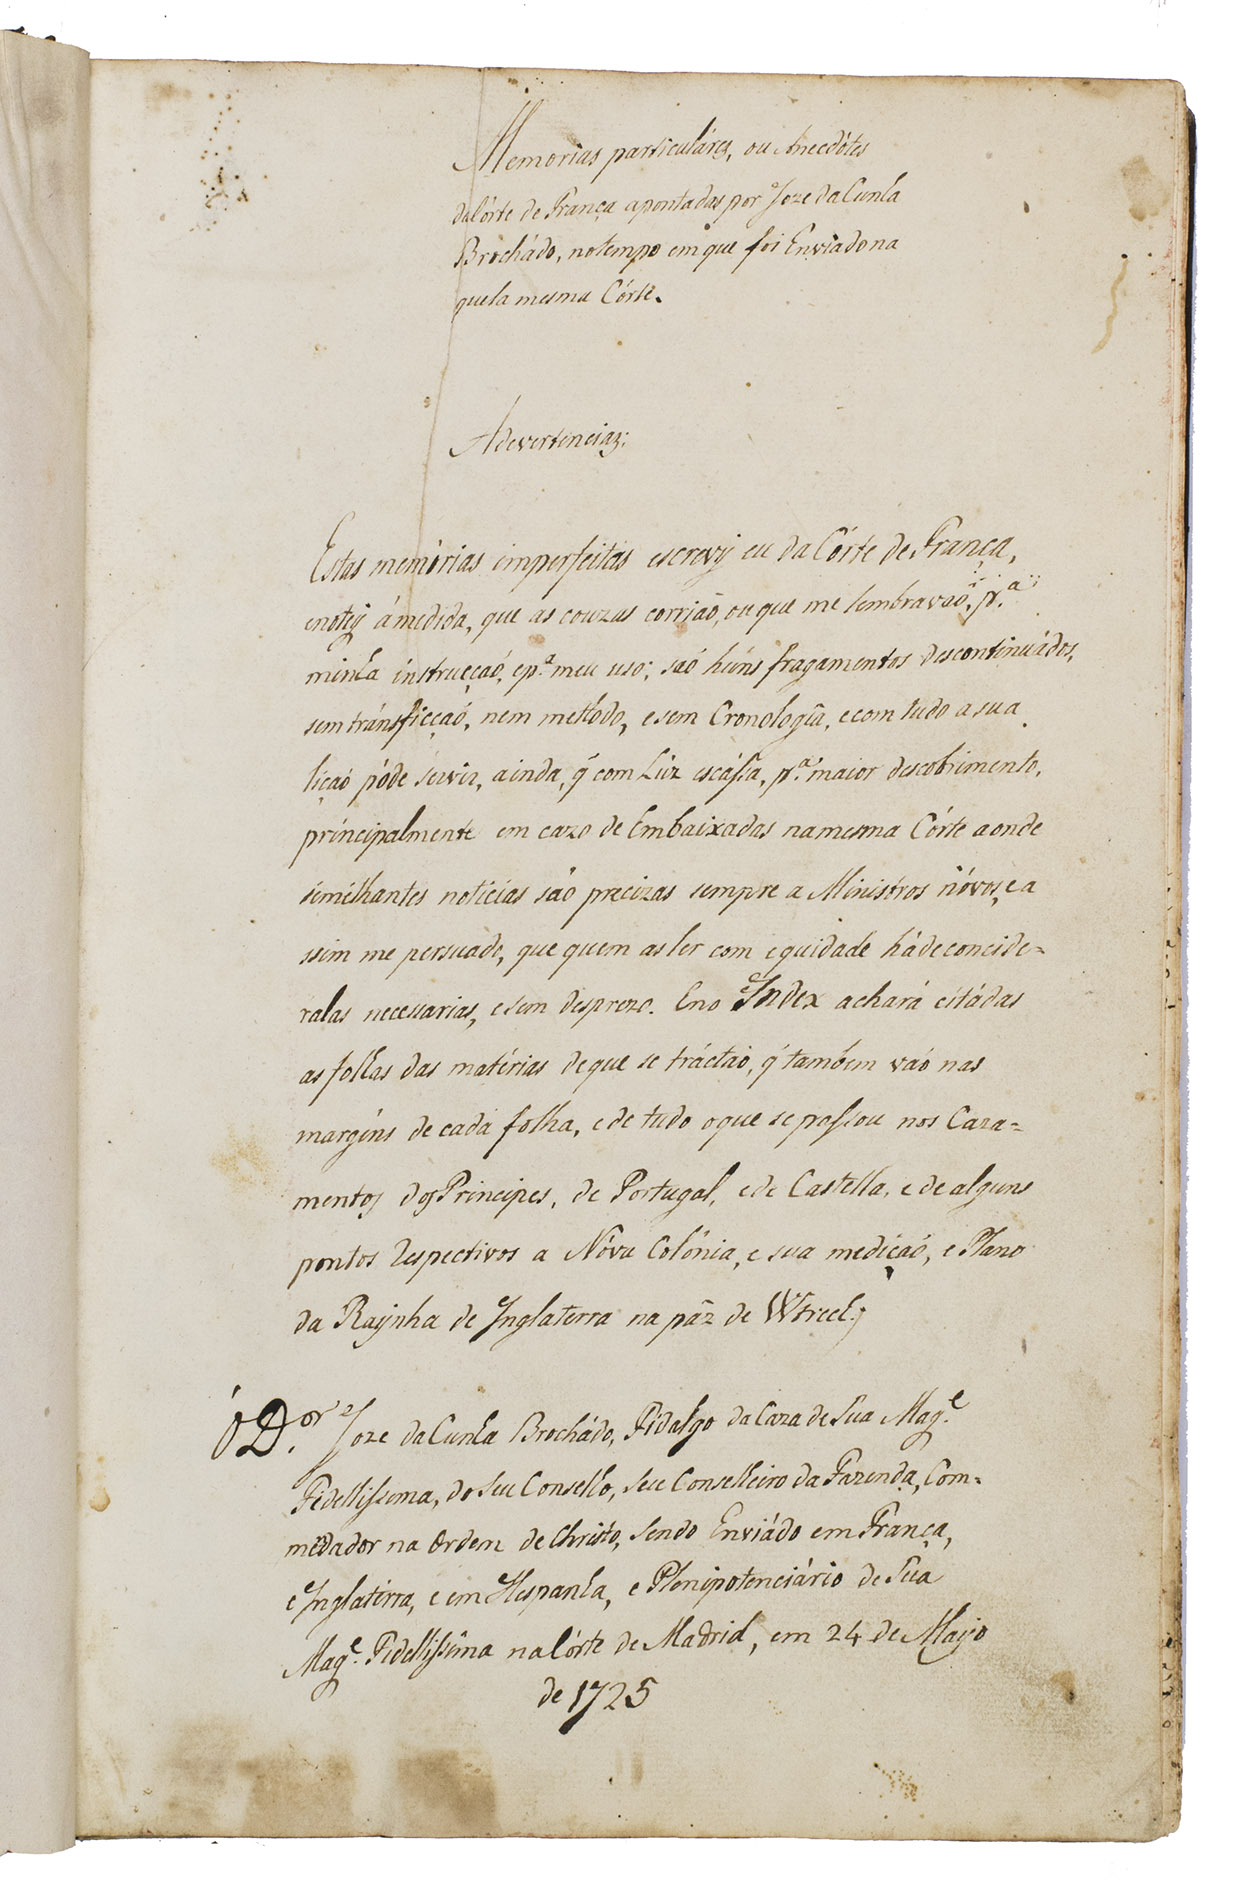 Memorias particuláres, ou Anecdótes
da Córte de França apontadas por Joze da Cunha
Brochádo, no tempo em que foi Enviado na
quela mesma Córte.
Adevertencias;
Estas memórias imperfeitas escrevy eu da Córte de França,
e notey á medida, que as couzas corriaõ, ou que me lembravaõ, p.ª
minha instrucçaõ, e p.ª meu uso; saõ huns fragamentos descontinuádos,
sem tránsficçaõ, nem methodo, e sem Cronologîa, e com tudo a sua
liçaõ póde servir, ainda, q̃ com Luz escássa, p.ª maior descobrimento,
principalmente em cazo de Embaixadas na mesma Córte aonde
similhantes noticias saõ precizas sempre a Ministros nóvos, e a
ssim me persuado, que quem as ler com equidade há de concide=
ralas necessarias, e sem desprezo. E no Index achará citádas
as folhas das matérias de que se tráctaõ, q̃ tambem vaõ nas
margins de cada folha, e de tudo o que se passou nos Caza=
mentos dos Principes, de Portugal, e de Castella, e de alguns
pontos Respectivos a Nóva Colónia, e sua mediçaõ, e Plano
da Raynha de Inglaterra na páz de Wtrecl;
O D.or Joze da Cunha Brochádo, Fidalgo da Caza de Sua Mag.e
Fidellissima, do Seu Conselho, seu Conselheiro da Fazenda, Com=
medador na Ordem de Christo, sendo Enviádo em França,
e Inglaterra, e em Hespanha, e Plenipotenciário de Sua
Mag.e Fidellissima na Córte de Madrid, em 24 de Mayo
de 1725